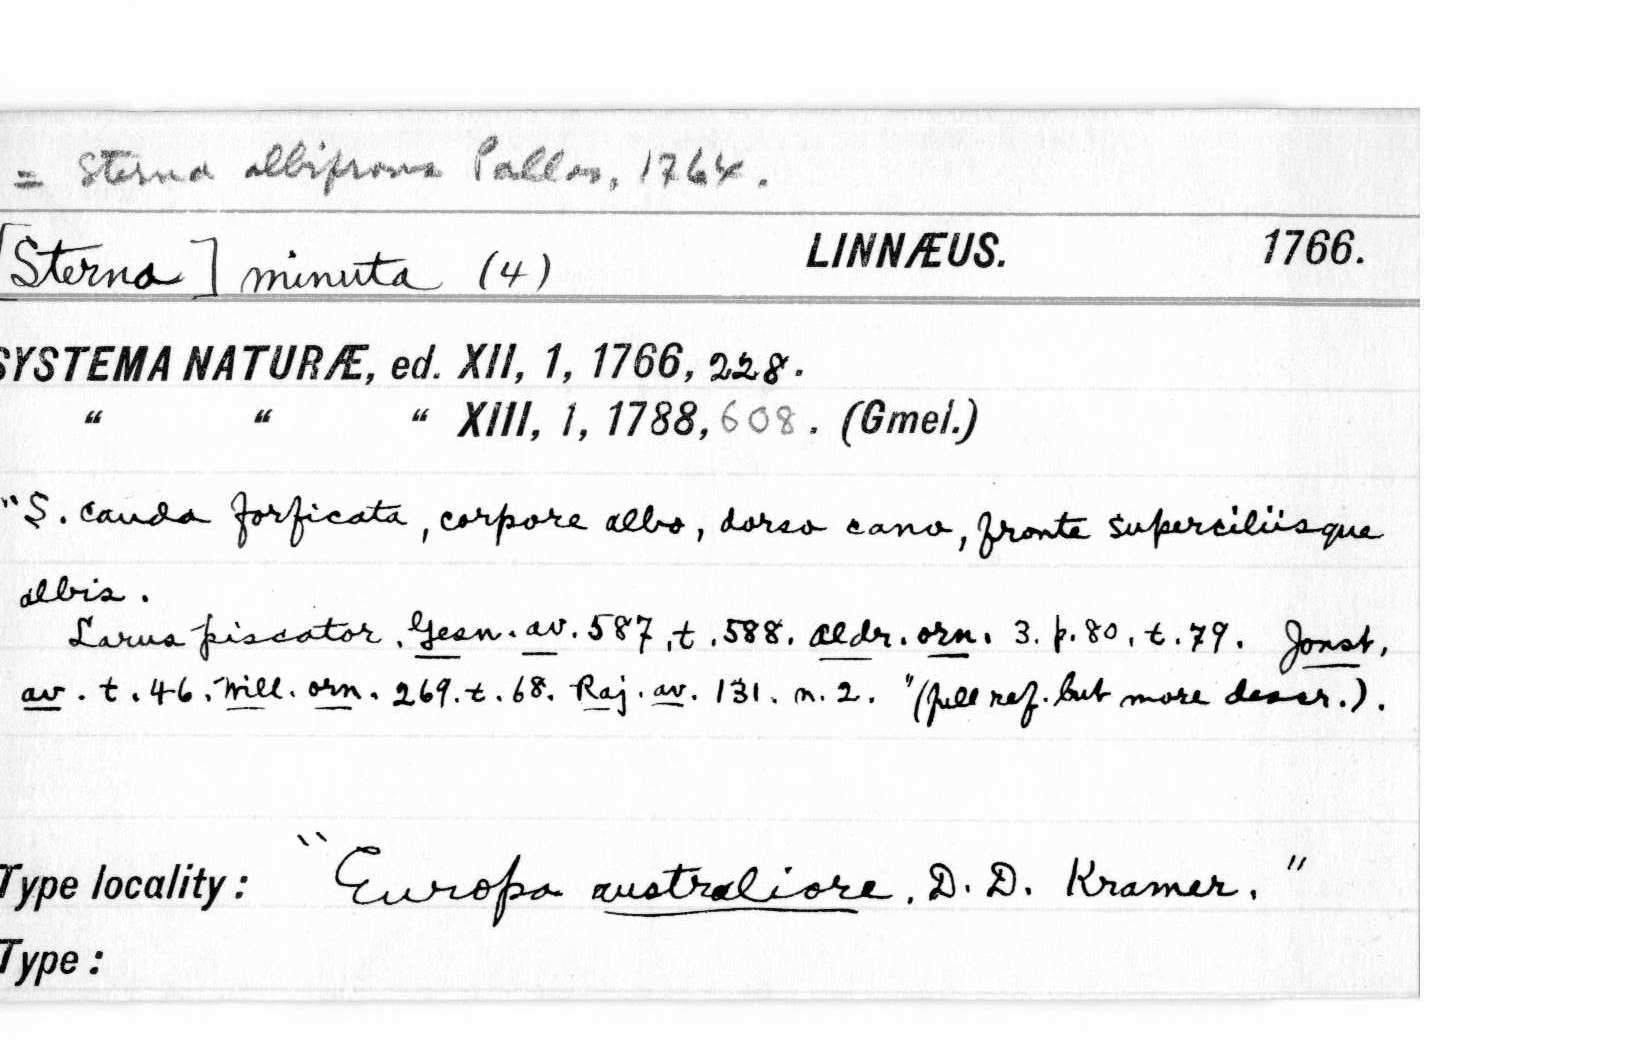 = Sterna albifrons Pallas, 1764.
[Sterna] minuta (4) LINNÆUS. 1766.
SYSTEMA NATURÆ, ed. XII, 1, 1766, 228.
“ “ “ XIII, 1, 1788, 608. (Gmel.)
"S. cauda forficata, corpore albo, dorso cano, fronte superciliisque
albis.
Larus piscator. Gesn. av. 587, t. 588. Aldr. orn. 3. p. 80. t. 79. Jonst.
av. t. 46. Will. orn. 269. t. 68. Raj. av. 131. n. 2. "(full ref. but more descr.).
Type locality: "Europa australiore. D. D. Kramer."
Type: